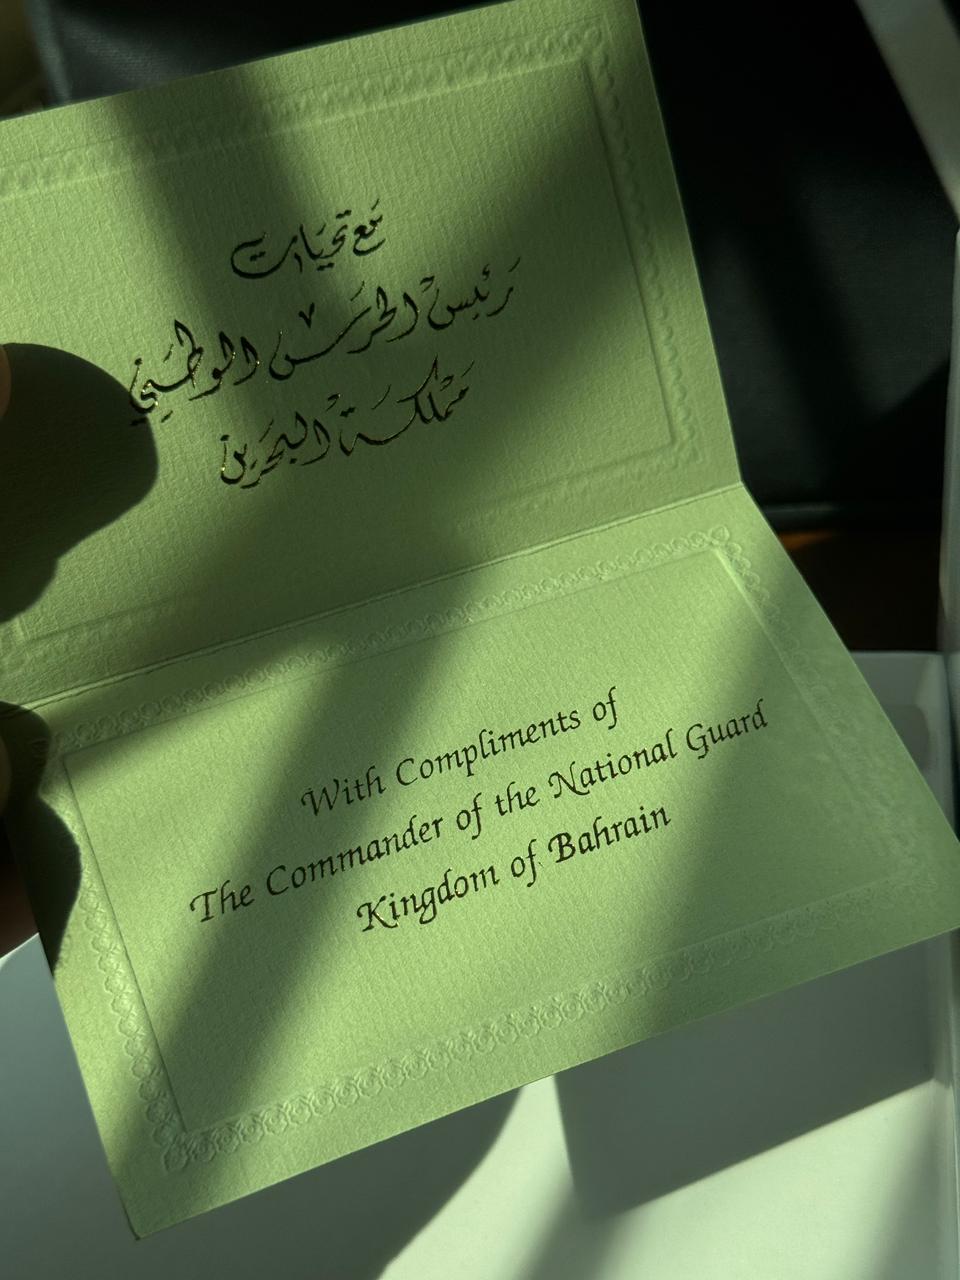 مَع تحيَات
رَئيسْ الحَرَسْ الوطَني
مَمْلكَة البَحْرَين
With Compliments of
The Commander of the National Guard
Kingdom of Bahrain